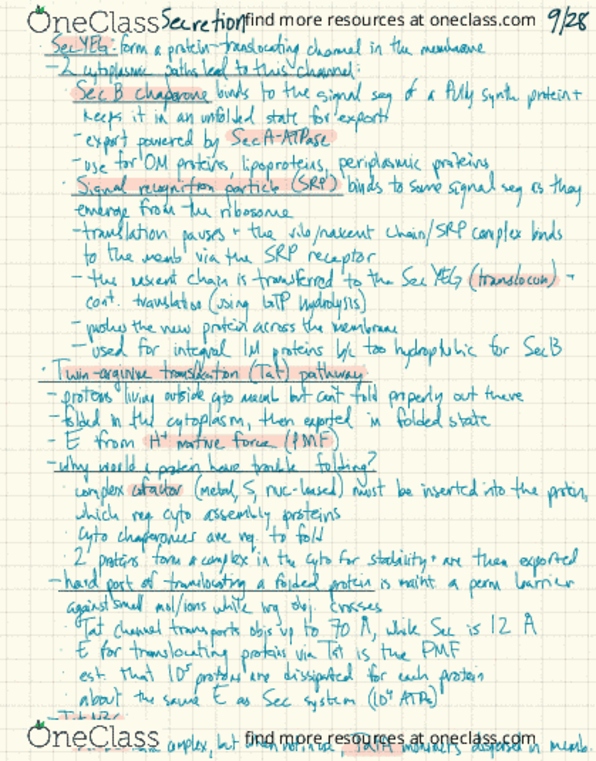 OneClass Secretion find more resources at oneclass.com 9/28
· SecYEG: form a protein-translocating channel in the membrane
- 2 cytoplasmic paths lead to this channel:
· SecB chaperone binds to the signal seq of a fully synth protein +
keeps it in an unfolded state for export
- export powered by SecA-ATPase
- use for OM proteins, lipoproteins, periplasmic proteins
· Signal recognition particle (SRP) binds to some signal seq as they
emerge from the ribosome
- translation pauses + the ribo/nascent chain/SRP complex binds
to the memb via the SRP receptor
- the nascent chain is transferred to the SecYEG (translocon) +
cont. translation (using GTP hydrolysis)
- pushes the new protein across the membrane
- used for integral IM proteins b/c too hydrophilic for SecB
· Twin-arginine translocation (Tat) pathway
- proteins living outside cyto memb but can't fold properly out there
- folded in the cytoplasm, then exported in folded state
- E from H+ motive force (PMF)
- why would a protein have trouble folding?
· complex cofactor (metal, S, nuc-based) must be inserted into the protein,
which req cyto assembly proteins
· cyto chaperones are req. to fold
· 2 proteins form a complex in the cyto for stability + are then exported
- hard part of translocating a folded protein is maint. a perm barrier
against small mol/ions while lrg obj. crosses
· Tat channel transports objs up to 70 Å, while Sec is 12 Å
· E for translocating proteins via Tat is the PMF
· est. that 10⁵ protons are dissipated for each protein
· about the same E as Sec system (10⁴ ATPs)
OneClass find more resources at oneclass.com
complex, but when not in use, TatA monomers dispersed in memb.